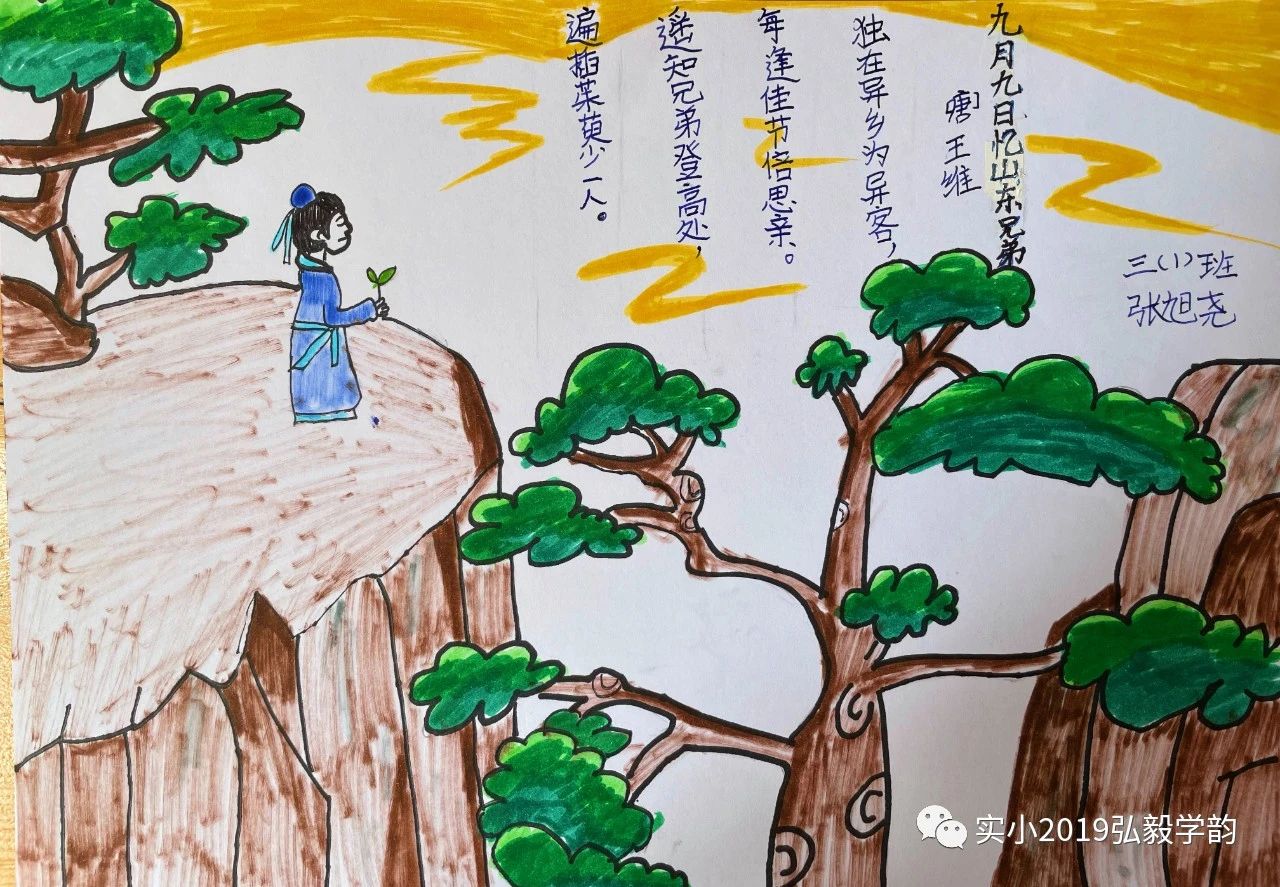 九月九日忆山东兄弟
唐］王维
独在异乡为异客，
每逢佳节倍思亲。
遥知兄弟登高处，
遍插茱萸少一人。
三（1）班
张旭尧
实小2019弘毅学韵